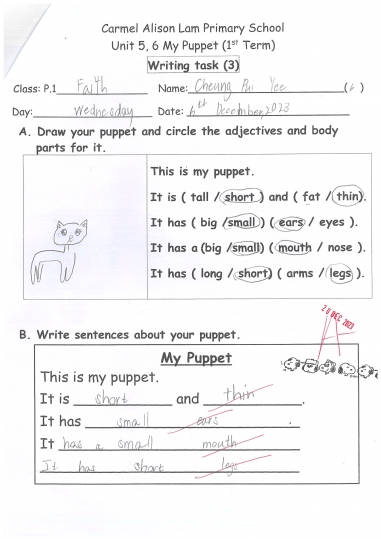 Carmel Alison Lam Primary School
Unit 5, 6 My Puppet (1st Term)
Writing task (3)
Class: P.1 Faith Name: Cheung Pui Yee (6)
Day: Wednesday Date: 6th December, 2023
A. Draw your puppet and circle the adjectives and body
parts for it.
This is my puppet.
It is ( tall / short ) and ( fat / thin ).
It has ( big / small ) ( ears / eyes ).
It has a (big / small) ( mouth / nose ).
It has ( long / short ) ( arms / legs ).
20 DEC 2023
A
B. Write sentences about your puppet.
My Puppet
This is my puppet.
It is short and thin.
It has small ears.
It has a small mouth
It has short legs